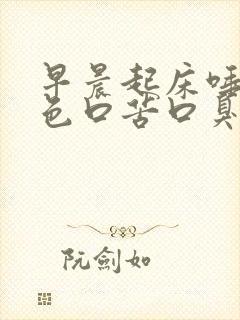 早晨起床唾
色口苦口臭
阮劍如